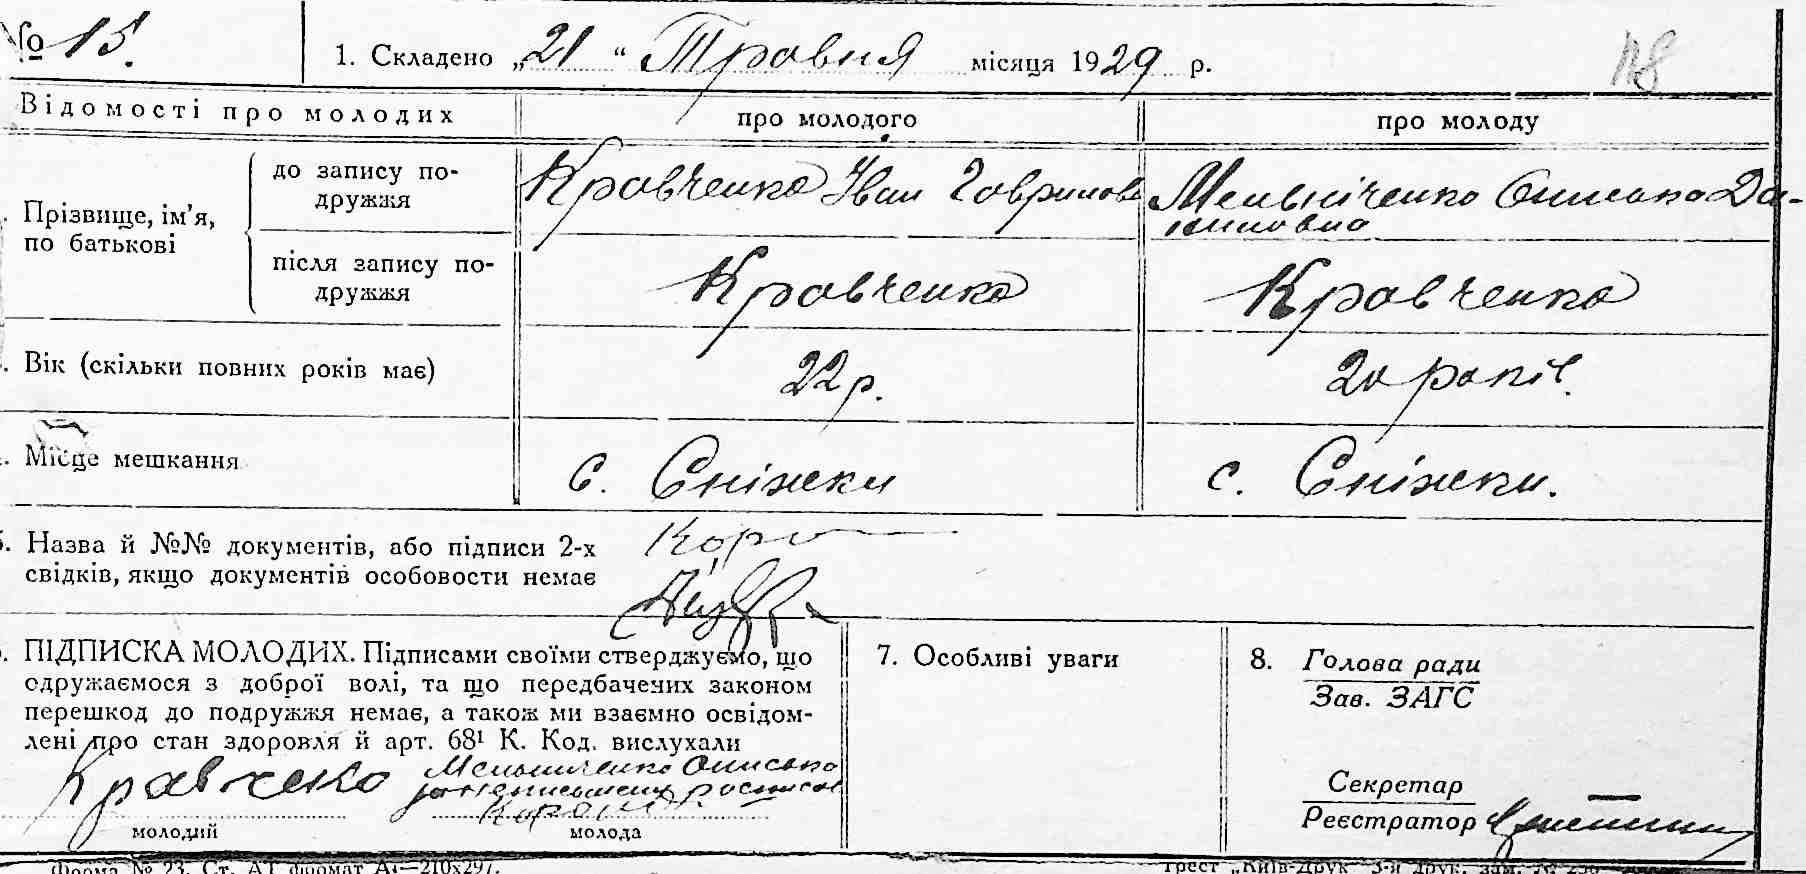 № 15.
1. Складено „21“ Травня місяця 1929 р.
118
Відомості про молодих
про молодого
про молоду
Прізвище, ім’я,
по батькові
до запису по-
дружжя
Кравченко Іван Гаврилов
Мельніченко Ониська Да-
ниловна
після запису по-
дружжя
Кравченко
Кравченко
Вік (скільки повних років має)
22 р.
20 років.
Місце мешкання
с. Сніжки
с. Сніжки.
5. Назва й №№ документів, або підписи 2-х
свідків, якщо документів особовости немає
ПІДПИСКА МОЛОДИХ. Підписами своїми стверджуємо, що
одружаємося з доброї волі, та що передбачених законом
перешкод до подружжя немає, а також ми взаємно освідом-
лені про стан здоровля й арт. 68¹ К. Код. вислухали
Кравченко
молодий
Мельниченко Ониська
молода
7. Особливі уваги
8. Голова ради
Зав. ЗАГС
Секретар
Реєстратор
Форма № 23. Ст. АТ формат А₁—210х297.
Трест „Київ-Друк“ 3-я друк. зам. №